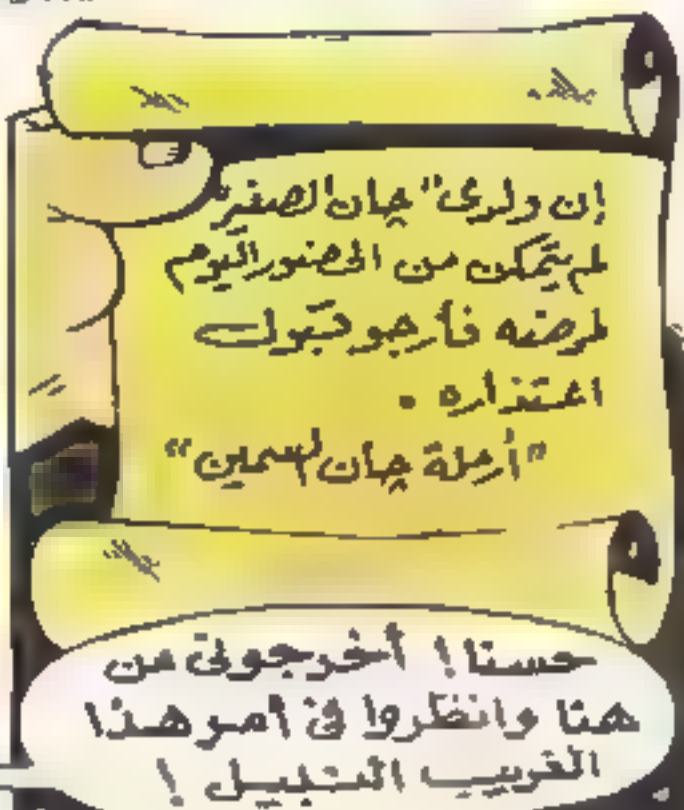 إن ولدى "چان الصغير"
لم يتمكن من الحضور اليوم
لمرضه فأرجو قبول
اعتذاره .
"أرملة چان السمين"
حسنا ! أخرجونى من
هنا وانظروا فى أمر هذا
الغريب النبيل !